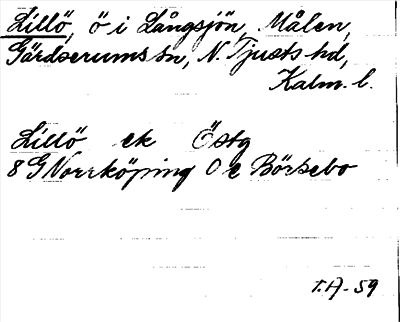 Lillö, ö i Långsjön, Målen,
Gärdserums sn, N. Tjusts hd,
Kalm. l.
Lillö ek Östg
8 G Norrköping 0 e Börsebo
T.A-59